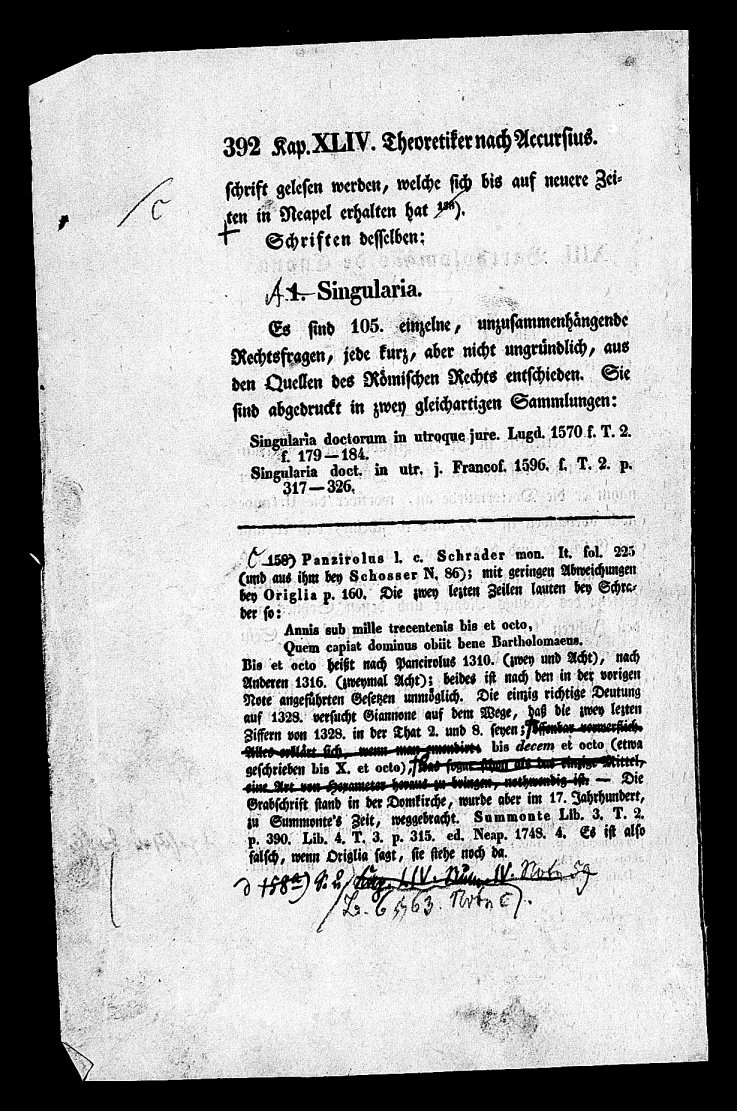 392 Kap. XLIV. Theoretiker nach Accursius.
schrift gelesen werden, welche sich bis auf neuere Zei-
ten in Neapel erhalten hat 158).
C
Schriften desselben:
A 1. Singularia.
Es sind 105. einzelne, unzusammenhängende
Rechtsfragen, jede kurz, aber nicht ungründlich, aus
den Quellen des Römischen Rechts entschieden. Sie
sind abgedruckt in zwey gleichartigen Sammlungen:
Singularia doctorum in utroque jure. Lugd. 1570 f. T. 2.
f. 179—184.
Singularia doct. in utr. j. Francof. 1596. f. T. 2. p.
317—326.
C 158) Panzirolus l. c. Schrader mon. It. fol. 225
(und aus ihm bey Schosser N. 86); mit geringen Abweichungen
bey Origlia p. 160. Die zwey lezten Zeilen lauten bey Schra-
der so:
Annis sub mille trecentenis bis et octo,
Quem capiat dominus obiit bene Bartholomaeus.
Bis et octo heißt nach Pancirolus 1310. (zwey und Acht), nach
Anderen 1316. (zweymal Acht); beides ist nach den in der vorigen
Note angeführten Gesetzen unmöglich. Die einzig richtige Deutung
auf 1328. versucht Giannone auf dem Wege, daß die zwey lezten
Ziffern von 1328. in der That 2. und 8. seyen;
Alles erklärt sich, wenn man emendirt: bis decem et octo (etwa
geschrieben bis X. et octo), das sogar schon als das einzige Mittel,
eine Art von Hexameter heraus zu bringen, nothwendig ist. — Die
Grabschrift stand in der Domkirche, wurde aber im 17. Jahrhundert,
zu Summonte's Zeit, weggebracht. Summonte Lib. 3. T. 2.
p. 390. Lib. 4. T. 3. p. 315. ed. Neap. 1748. 4. Es ist also
falsch, wenn Origlia sagt, sie stehe noch da.
158a) Num. IV. Note
63. Note C).